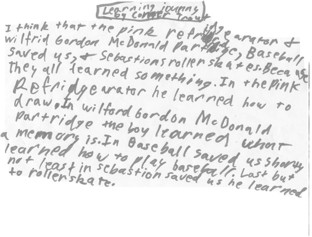 Learning journy
by conner
I think that the pink refridgearator &
wilfrid Gordon McDonald partridge, Baseball
saved us, & Sebastions rollerskates. Because
they all learned something. In the pink
Refridgearator he learned how to
draw. In wilford Gordon McDonald
partridge the boy learned what
a memory is. In Baseball saved us shorty
learned how to play baseball. Last but
not least in sebastion saved us he learned
to rollerskate.